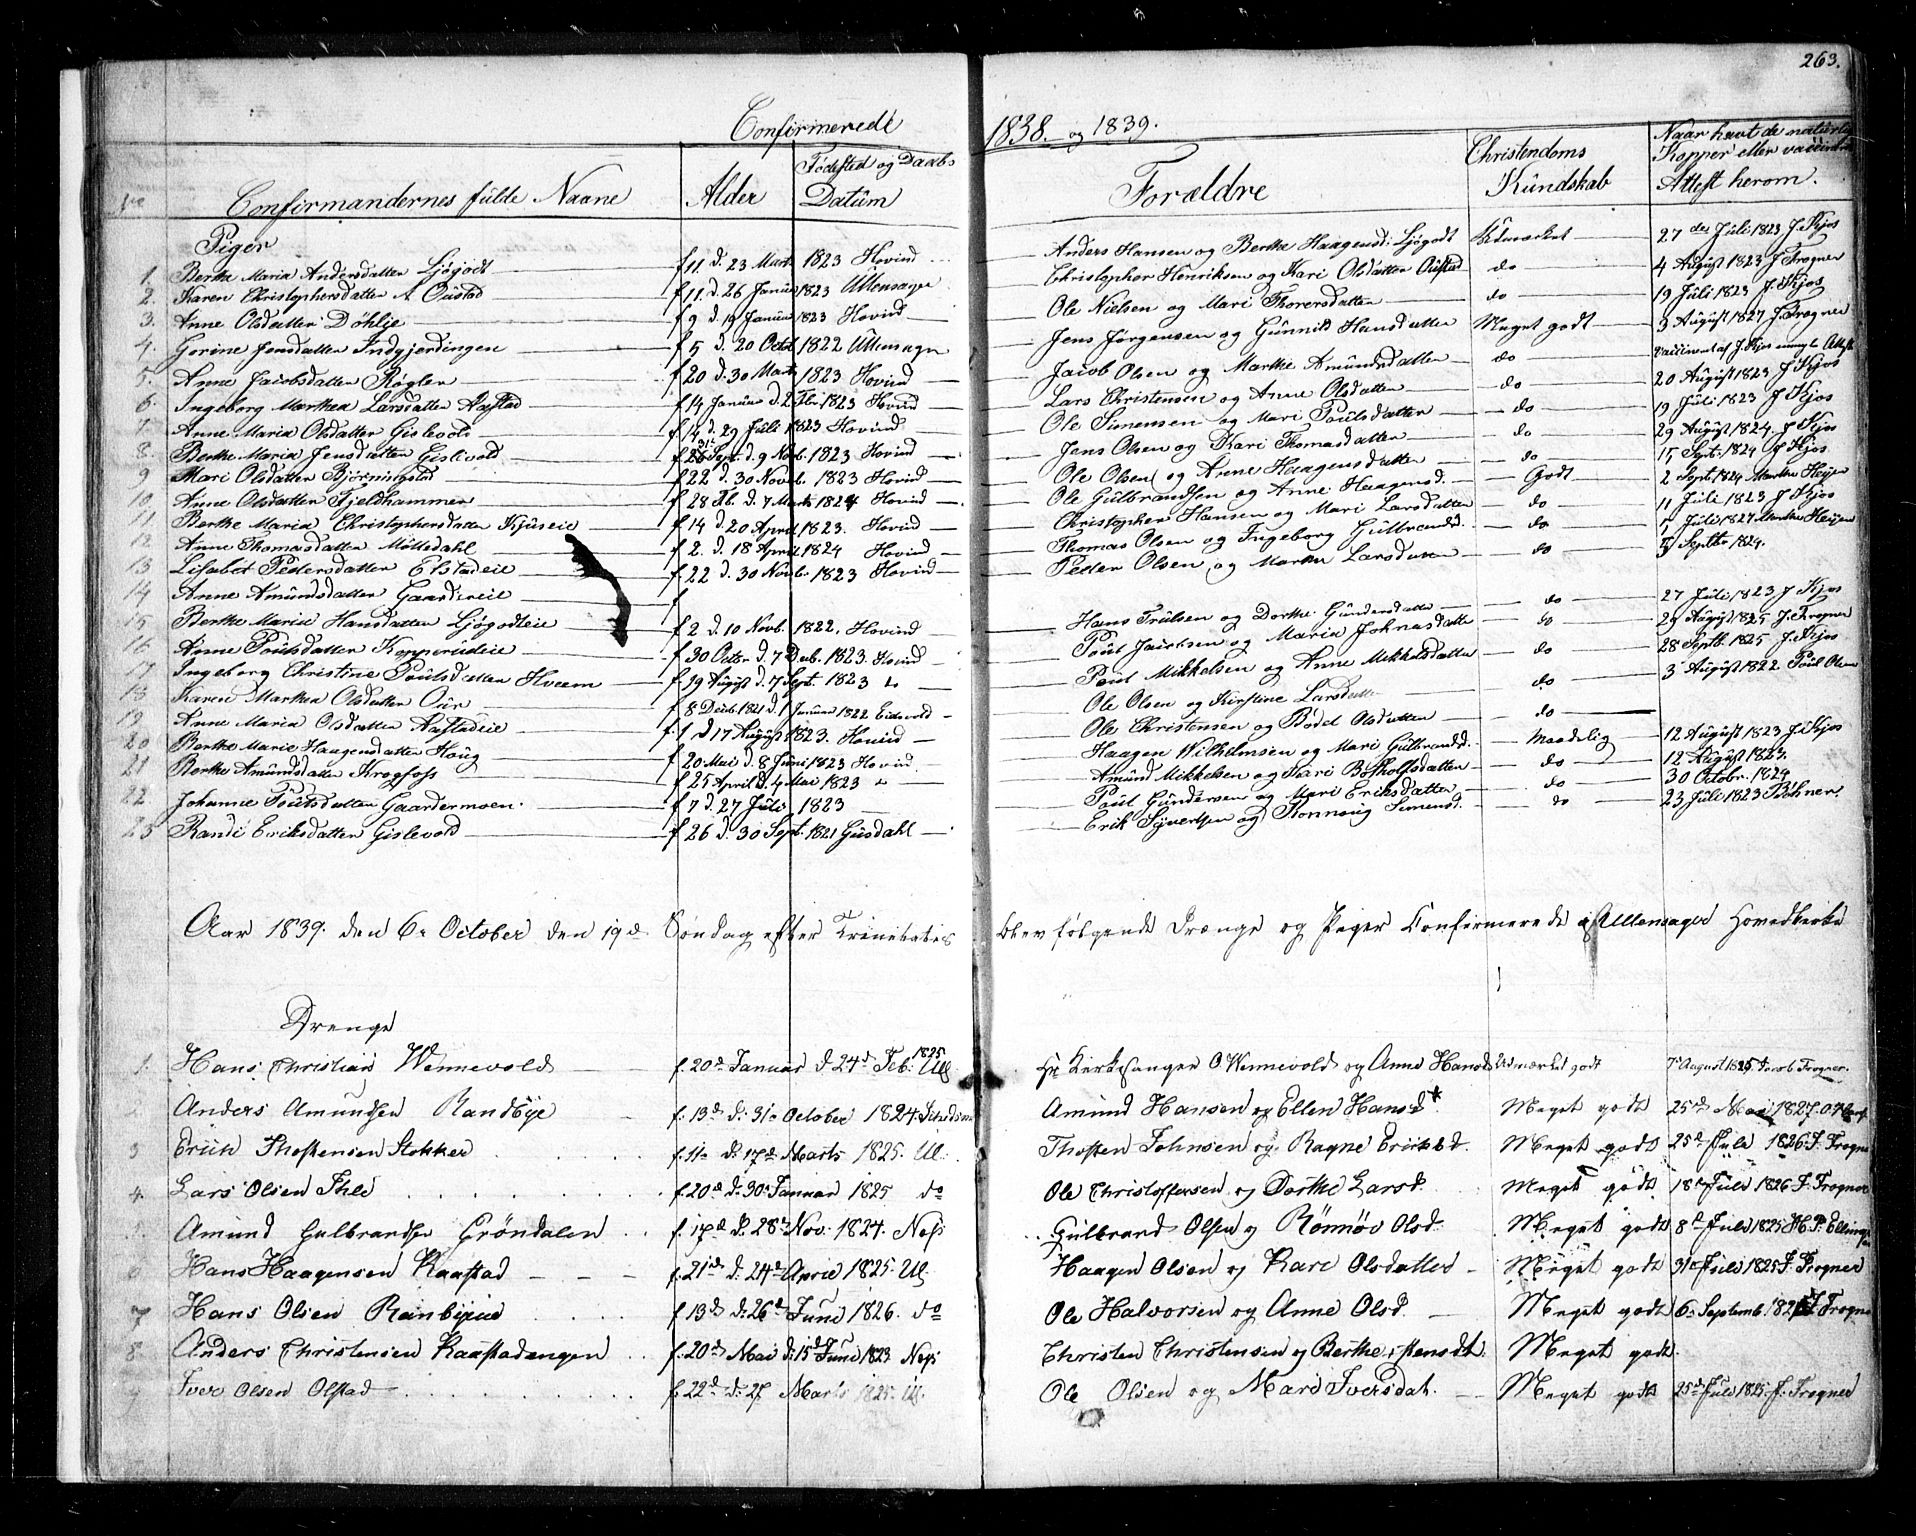 263.
Confirmerede 1838. og 1839.
No Confirmandernes fulde Navne Alder Fødested og Daabs Datum Forældre Christendoms Kundskab Naar havt de naturl. Kopper eller vaccineret Attest herom.
Piger
1. Berthe Maria Andersdatter Ljøgodt f. 11 d. 23 Marts 1823 Hovind Anders Hansen og Berthe Haagensd. Ljøgodt Udmærket 27de Juli 1823 J. Kjos
2. Karen Christophersdatter Oustad f. 11. d. 26 Januar 1823 Ullensager Christopher Henriksen og Kari Olsdatter Oustad do 4 August 1823 J. Trogner
3. Anne Olsdatter Døhlie f 9 d. 19 Januar 1823 Hovind Ole Nielsen og Mari Thorersdatter do 19 Juli 1823 J. Kjos
4. Gorine Jensdatter Indgjerdingen f 5 d. 20 Octob 1822 Ullensager Jens Jørgensen og Gunnild Hansdatter Meget godt 3 August 1827 J. Trogner
5. Anne Jacobsdatter Røgler f 20 d. 30 Marts 1823 Hovind Jacob Olsen og Marthe Amundsdatter do vaccineret af J. Kjos
6. Ingeborg Marthea Larsdatter Aastad f 14 Januar d. 2 Febr 1823 Hovind Lars Christensen og Anne Olsdatter do 20 August 1823 J Kjos
7. Anne Maria Olsdatter Gislevold f 14 d. 29 Juli 1823 Hovind Ole Simensen og Mari Poulsdatter do 19 Juli 1823 J Kjos
8. Berthe Maria Jensdatter Gislevold Sept. d. 9 Novb. 1823 Hovind Jens Olsen og Kari Thomasdatter do 29 August 1824. J Kjos
9 Mari Olsdatter Bjørningstad f 22 d. 30 Novb. 1823 Hovind Ole Olsen og Anne Haagensdatter do 15 Sept. 1824 J Kjos
10. Anne Olsdatter Fjeldhammer f 28 Fb. d. 7 Marts 1824 Hovind Ole Gulbrandsen og Anne Haagensd. Godt 2 Sept 1824
11. Berthe Maria Christophersdatter Kjuseie f 14 d. 20 April 1823. Hovind Christopher Hansen og Mari Larsdatter do 11 Juli 1823 J. Kjos
12. Anne Thomasdatter Mølledahl f 2. d. 18 April 1824 Hovind Thomas Olsen og Ingeborg Gulbrandsd. do Juli 1827
13 Lisabet Pedersdatter Elstadeie f. 22 d. 30 Novb. 1823 Hovind Peder Olsen og Marthe Larsdatter do Septbr 1824.
14 Anne Amundsdatter Gaardereie f
15 Berthe Maria Hansdatter Ljøgodteie f 2 d. 10 Novb. 1822. Hovind Hans Trulsen og Dorthe Gundersdatter do 27 Juli 1823 J Kjos
16 Anne Poulsdatter Kopperudeie f 30 Octbr d. 7 Decb. 1823. Hovind Poul Jacobsen og Maria Johnasdatter do 29 August 1825 J. Trogner
17 Ingeborg Christine Poulsdatter Hveem f 19 August d. 7 Sept. 1823 Poul Mikkelsen og Anne Mikkelsdatter do 28 Septb. 1825 J. Kjos
18 Karen Marthea Olsdatter f 8 Decb 1821 d. 1 Januar 1822 Eidsvold Ole Olsen og Kirstine Larsdatter do 3 August 1822 Poul Olsen
19 Anne Maria Olsdatter Aastadeie f 1 d 17 August 1823. Hovind Ole Christensen og Bodel Olsdatter do
20 Berthe Marie Haagensdatter Houg f 20 Mai d. 8 Juni 1823 Hovind Haagen Wilhelmsen og Mari Gulbrandsd. Maadelig 12 August 1823 J. Kjos
21 Berthe Amundsdatter Krogfoss f 25 April d. 4 Mai 1823 Amund Mikkelsen og Kari Botholfsdatter do 12 August 1823.
22 Johanne Poulsdatter Gaardermoen. f 7 d. 27 Juli 1823 Poul Gundersen og Mari Eriksdatter do 30 Octobr. 1824
23 Randi Eriksdatter Gislevold f. 26 d. 30 Sept. 1821 Gusdahl Erik Syvertsen og Ronnoug Simensd. do 23 Juli 1823
Aar 1839. den 6te October den 19de Søndag efter Trinitatis blev følgende Drenge og Piger Confirmerede i Ullensager Hovedkirke
Drenge
1. Hans Christian Wennevold f. 20de Januar d 24de Feb. 1825 Ull. Kirkesanger O. Wennevold og Anne Hansd. Udmærket godt 7de August 1825 Jacob Trogner.
2 Anders Amundsen Randbye f. 13de d. 31te October 1824 Amund Hansen og Ellen Hansd. Meget godt 25de Mai 1827.
3 Erich Thostensen Stokker f. 11te d. 17de Marts 1825. Ul. Thosten Johnsen og Ragne Ericksd. Meget godt 25de Juli 1826 J. Trogner
4. Lars Olsen Ihle f. 20de d. 30te Januar 1825 do Ole Christoffersen og Dorthe Larsd. Meget godt 18de Juli 1826 J. Trogner
5. Amund Gulbrandsen Grøndalen f. 17de d. 28de Nov. 1824. Nes Gulbrand Olsen og Rønnøv Olsd. Meget godt 8de Juli 1825 H. P. Ellingsen
6 Hans Haagensen Raastad f. 21de d. 24de April 1825. Ul. Haagen Olsen og Kari Olsdatter Meget godt 31te Juli 1825 J. Trogner
7 Hans Olsen Ranbyeie f. 13de d. 26de Juni 1826. do Ole Halvorsen og Anne Olsd. Meget godt 6te Septemb. J. Trogner
8 Anders Christensen Raastadengen f. 20de Mai d. 15de Juni 1823 Nes Christen Christensen og Berthe Meget godt.
9 Iver Olsen Olstad f. 22de d. 27 Marts 1825. Ul. Ole Olsen og Mari Iversdat. Meget godt 25de Juli 1825. J. Trogner